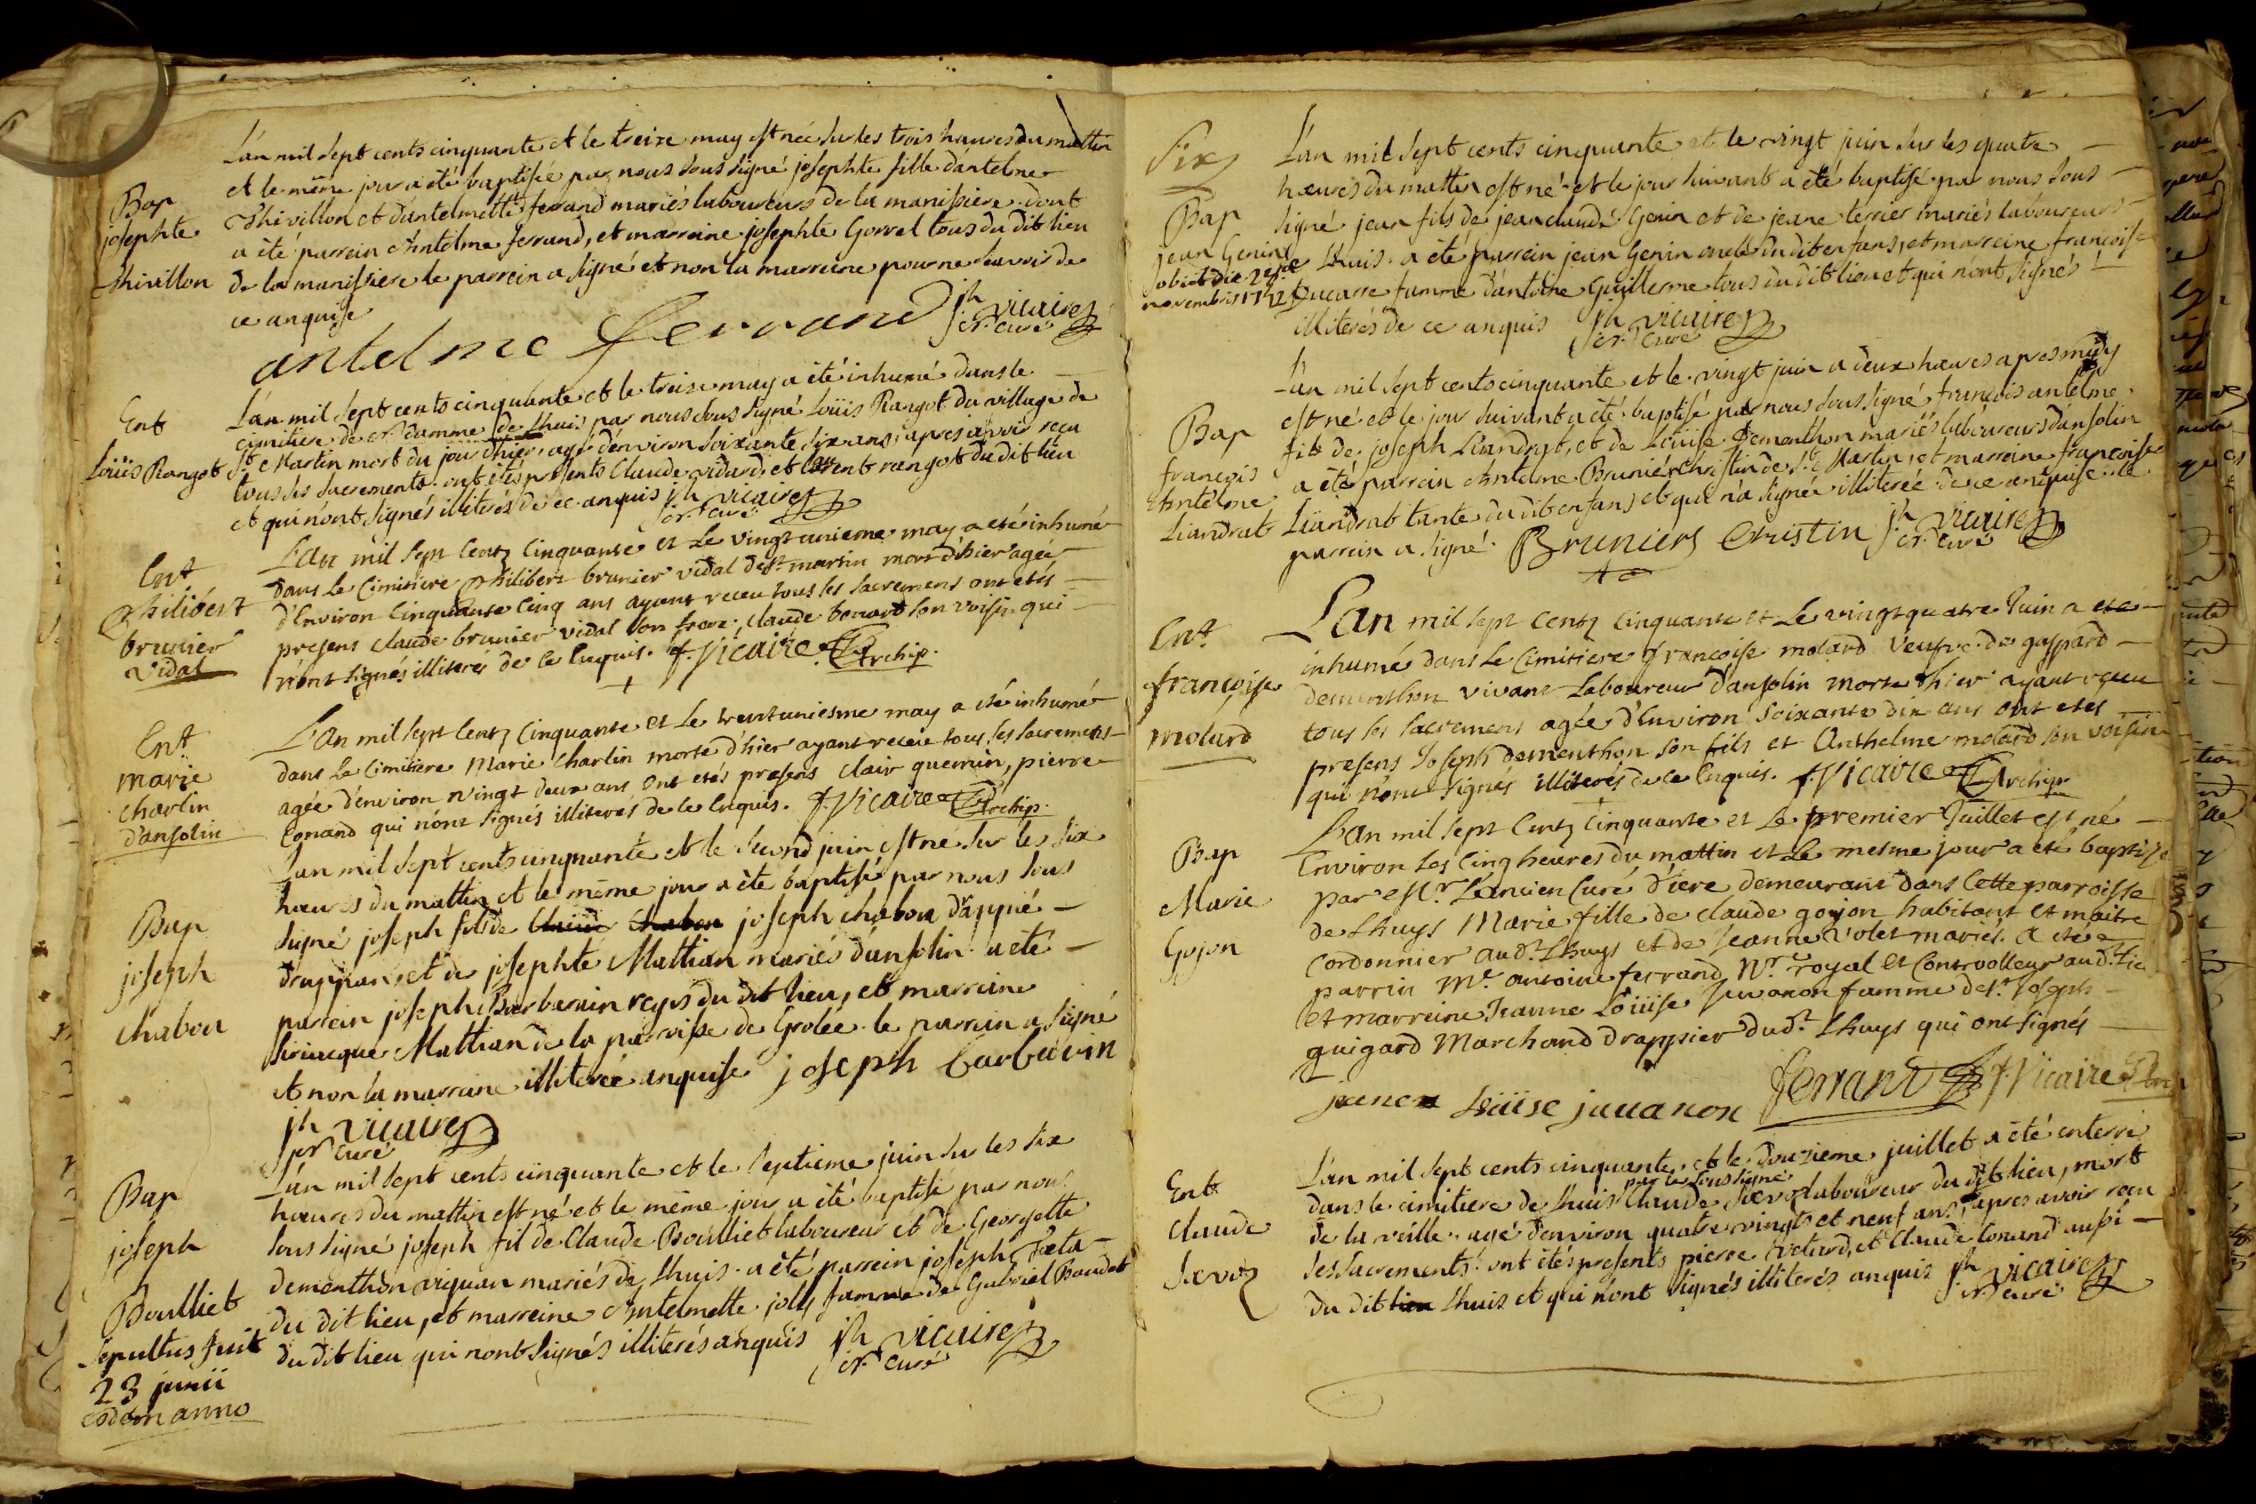 L'an mil sept cents cinquante et le treize may est née sur les trois heures du mattin
et le même jour a été baptisée par nous sous signé josephte fille d'antelme
Thivillon et d'antelmette ferrand mariés laboureurs de la manissiere. dont
a été parrain Antelme ferrand, et marraine josephte Gorrel tous du dit lieu
de la manissiere le parrein a signé et non la marreine pour ne scavoir de
ce anquise
Bap
josephte
thivillon
antelme ferrand jh vicaire
cr. curé
Ent
Loüis Rangot
L'an mil sept cents cinquante et le treise may a été inhumé dans le
cimitiere de nr. damme de Lhuis par nous sous signé Loüis Rangot du village de
St Martin mort du jour d'hier, agé d'environ soixante six ans, apres avoir reçu
tous les sacrements. ont étés présents Claude vidard, et rangot du dit lieu
et qui n'ont signés illiterés de ce anquis jh vicaire
cr. curé
Ent
Philibert
brunier
vidal
L'an mil sept Centz Cinquante et Le vingtunieme may a eté inhumé
dans Le Cimitiere Philibert brunier vidal de St martin mort d'hier agée
d'Environ Cinquante Cinq ans ayant receu tous les sacremens ont etés
presens claude brunier vidal son frere. claude bonard son voisin qui
n'ont signés illiterés de Ce Enquis. f. Vicaire Archip.
Ent
marie
charlin
d'ansolin
L'an mil sept Centz Cinquante et Le trentuniesme may a eté inhumé
dans Le Cimitiere Marie Charlin morte d'hier ayant receue tous les sacremens
agée d'environ vingt deux ans ont etés presens clair guerrin, pierre
Conand qui n'ont signés illiterés de Ce Enquis. f. Vicaire Archip.
Bap
joseph
chabou
L'an mil sept cents cinquante et le second juin est né sur les six
heures du mattin et le même jour a été baptisé par nous sous
signé joseph fils de joseph chabou d'appié
drappian, et de josephte Mathian mariés d'ansolin a été
parrein joseph Barbarain reyes du dit lieu, et marreine
siriacque Mathian de la parroisse de Grolée. le parrain a signé
et non la marraine illiterée anquise joseph barbarin
jh vicaire
pr curé
Bap
joseph
Boulliet
sepultus fuit
23 junii
eodem anno
L'an mil sept cents cinquante et le septieme juin sur les six
heures du mattin est né et le même jour a été baptisé par nous
sous signé joseph fil de Claude Boulliet laboureur et de Georgette
dementhon viquan mariés de Lhuis. a été parrein joseph Fata
du dit lieu, et marreine Antelmette jolly famme de Gabriel Baudet
du dit lieu qui n'ont signés illiterés anquis jh vicaire
cr. curé
Six
Bap
jean Genin
obiit die 2
novembris
L'an mil sept cents cinquante et le vingt juin sur les quatre
heures du mattin est né et le jour suivant a été baptisé par nous sous
signé jean fils de jean claude Genin et de jeane terrier mariés laboureurs
Lhuis. a été parrein jean Genin oncle du dit enfans, et marreine françoise
Ducarre famme d'antoine Guillerme tous du dit lieu et qui n'ont signés
illiterés de ce anquis jh vicaire
cr. curé
Bap
françois
Antelme
Liandrat
L'an mil sept cents cinquante et le vingt juin a deux heures apres midy
est né et le jour suivant a été baptisé par nous sous signé françois antelme
fils de joseph Liandrat, et de Loüise Dementhon mariés laboureurs d'ansolin
a été parrein Antelme Brunier Christin de St Martin, et marreine françoise
Liandrat tante du dit enfans et qui n'a signée illiterée de ce anquise. le
parrein a signé. Brunier Cristin jh vicaire
cr. curé
Ent
françoise
molard
L'an mil sept Centz Cinquante et Le vingtquatre Juin a eté
inhumé dans Le Cimitiere françoise molard veufve de gaspard
dementhon vivant Laboureur d'ansolin morte d'hier ayant reçeu
tous les sacremens agée d'Environ soixante dix ans ont etés
presens Joseph dementhon son fils et Anthelme molard son voisin
qui n'ont signés illiterés de Ce Enquis. f. Vicaire Archip.
Bap
Marie
Gojon
L'an mil sept Centz Cinquante et Le premier Juillet est né
Environ Les Cinq heures du mattin et Le mesme jour a eté baptisé
par Mr. L'ancien Curé d'iere demeurant dans Cette parroisse
de Lhuys Marie fille de claude gojon habitant et maitre
Cordonnier aud. Lhuys et de Jeanne volet mariés. a eté
parrin Me antoine ferrand Nre royal et Controolleur aud. lie
et marreine Jeanne Loüise Juvanon famme de Sr Joseph
guigard Marchand Drappier dud. Lhuys qui ont signés
jeane Loüise juuanon ferrand f. Vicaire
Ent
Claude
Sæve
L'an mil sept cents cinquante, et le douzieme juillet a été enterré
par le sous signé
dans le cimitiere de Lhuis Claude laboureur du dit lieu, mort
de la veille. agé d'environ quatre vingts et neuf ans, apres avoir reçu
les sacrements. ont étés presents pierre vetard, et Claude Conand aussi
du dit lieu Lhuis et qui n'ont signés illiterés anquis jh vicaire
cr. curé